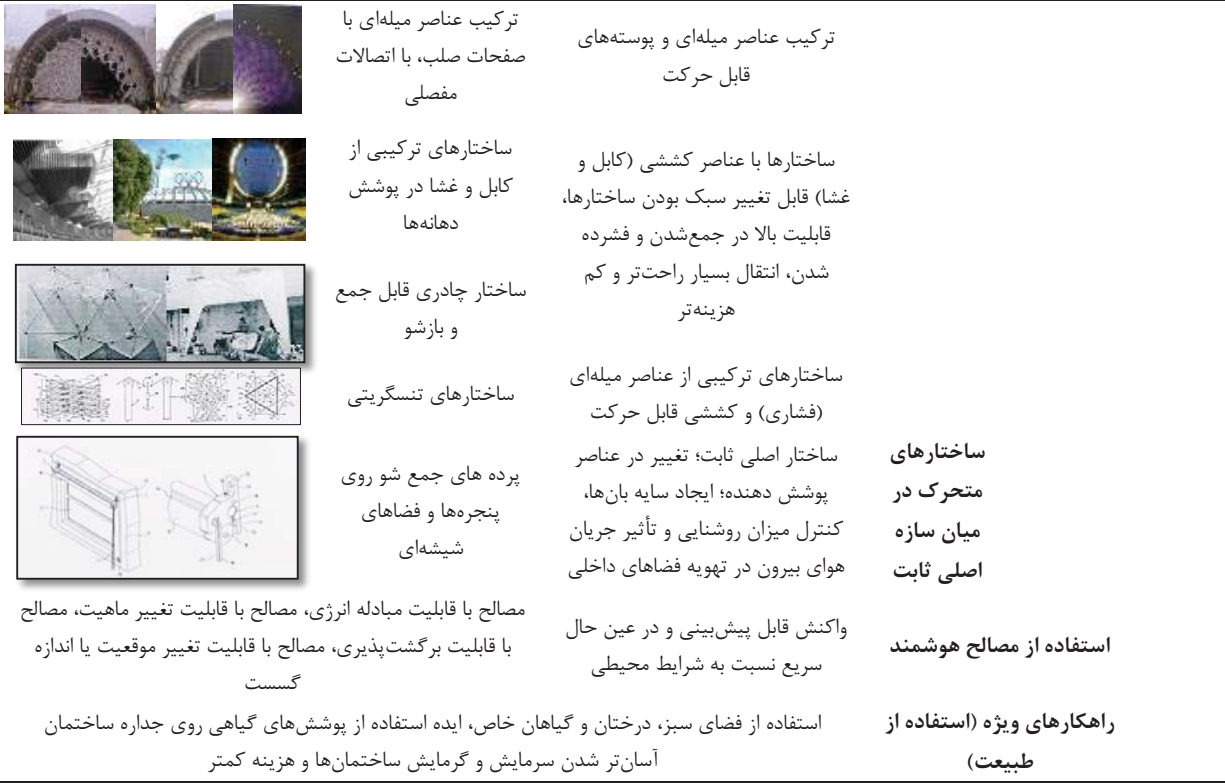 ترکیب عناصر میله‌ای و پوسته‌های
قابل حرکت
ترکیب عناصر میله‌ای با
صفحات صلب، با اتصالات
مفصلی
ساختارها با عناصر کششی (کابل و
غشا) قابل تغییر سبک بودن ساختارها،
قابلیت بالا در جمع‌شدن و فشرده
شدن، انتقال بسیار راحت‌تر و کم
هزینه‌تر
ساختارهای ترکیبی از
کابل و غشا در پوشش
دهانه‌ها
ساختار چادری قابل جمع
و بازشو
ساختارهای ترکیبی از عناصر میله‌ای
(فشاری) و کششی قابل حرکت
ساختارهای تنسگریتی
ساختارهای
متحرک در
میان سازه
اصلی ثابت
ساختار اصلی ثابت؛ تغییر در عناصر
پوشش دهنده؛ ایجاد سایه بان‌ها،
کنترل میزان روشنایی و تأثیر جریان
هوای بیرون در تهویه فضاهای داخلی
پرده های جمع شو روی
پنجره‌ها و فضاهای
شیشه‌ای
استفاده از مصالح هوشمند
واکنش قابل پیش‌بینی و در عین حال
سریع نسبت به شرایط محیطی
مصالح با قابلیت مبادله انرژی، مصالح با قابلیت تغییر ماهیت، مصالح
با قابلیت برگشت‌پذیری، مصالح با قابلیت تغییر موقعیت یا اندازه
گسست
راهکارهای ویژه (استفاده از
طبیعت)
استفاده از فضای سبز، درختان و گیاهان خاص، ایده استفاده از پوشش‌های گیاهی روی جداره ساختمان
آسان‌تر شدن سرمایش و گرمایش ساختمان‌ها و هزینه کمتر